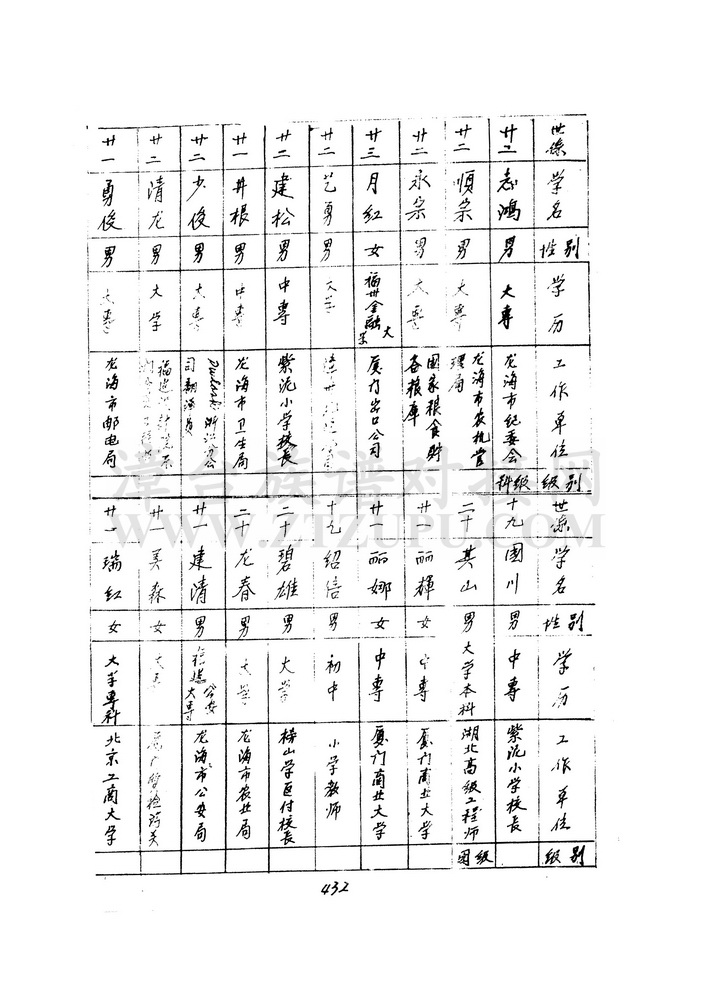 世系 学名 性别 学历 工作单位 级别
廿二 志鸿 男 大专 龙海市纪委会 科级
廿二 顺宗 男 大专 龙海市农机管理局
廿二 永宗 男 大专 国家粮食贮备粮库
廿三 月红 女 福州金融大学 厦门出口公司
廿二 艺勇 男 大学
廿二 建松 男 中专 紫泥小学校長
廿一 井根 男 中专 龙海市卫生局
廿二 少俊 男 大专 浙江 公司翻译员
廿二 清龙 男 大学 福建
廿一 勇俊 男 大专 龙海市邮电局
世系 学名 性别 学历 工作单位 级别
十九 国川 男 中专 紫泥小学校長
二十 其山 男 大学本科 湖北高级工程师 团级
廿 丽辉 女 中专 厦门商业大学
廿一 丽娜 女 中专 厦门商业大学
十九 绍信 男 初中 小学教师
二十 碧雄 男 大学 榜山学区付校長
二十 龙春 男 大学 龙海市农业局
廿一 建清 男 福建公安大专 龙海市公安局
廿 美森 女 大专
廿一 瑞红 女 大学专科 北京工商大学
432
漳台族谱对接网
WWW.ZTZUPU.COM